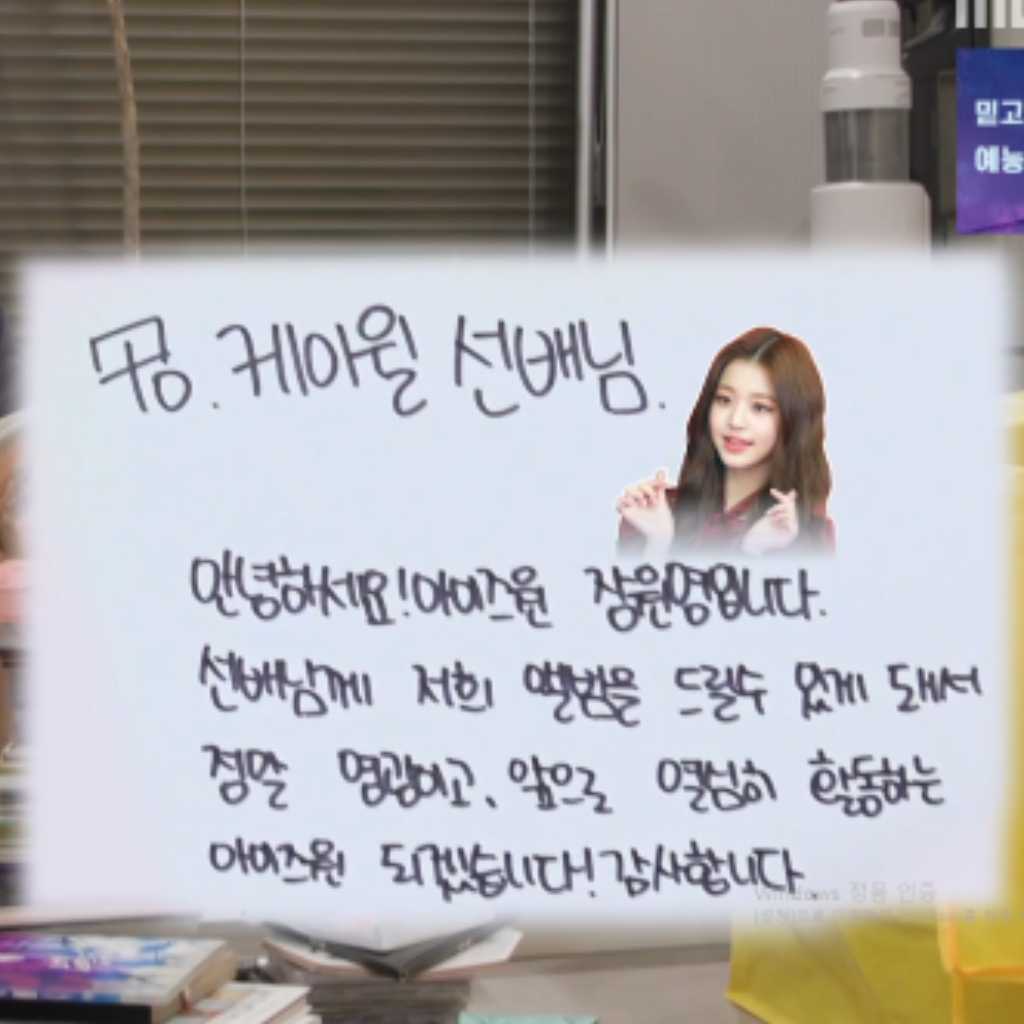 믿고
예능
꿍. 케이윌 선배님.
안녕하세요! 아이즈원 장원영입니다.
선배님께 저희 앨범을 드릴수 있게 돼서
정말 영광이고, 앞으로 열심히 활동하는
아이즈원 되겠습니다! 감사합니다.
Windows 정품 인증